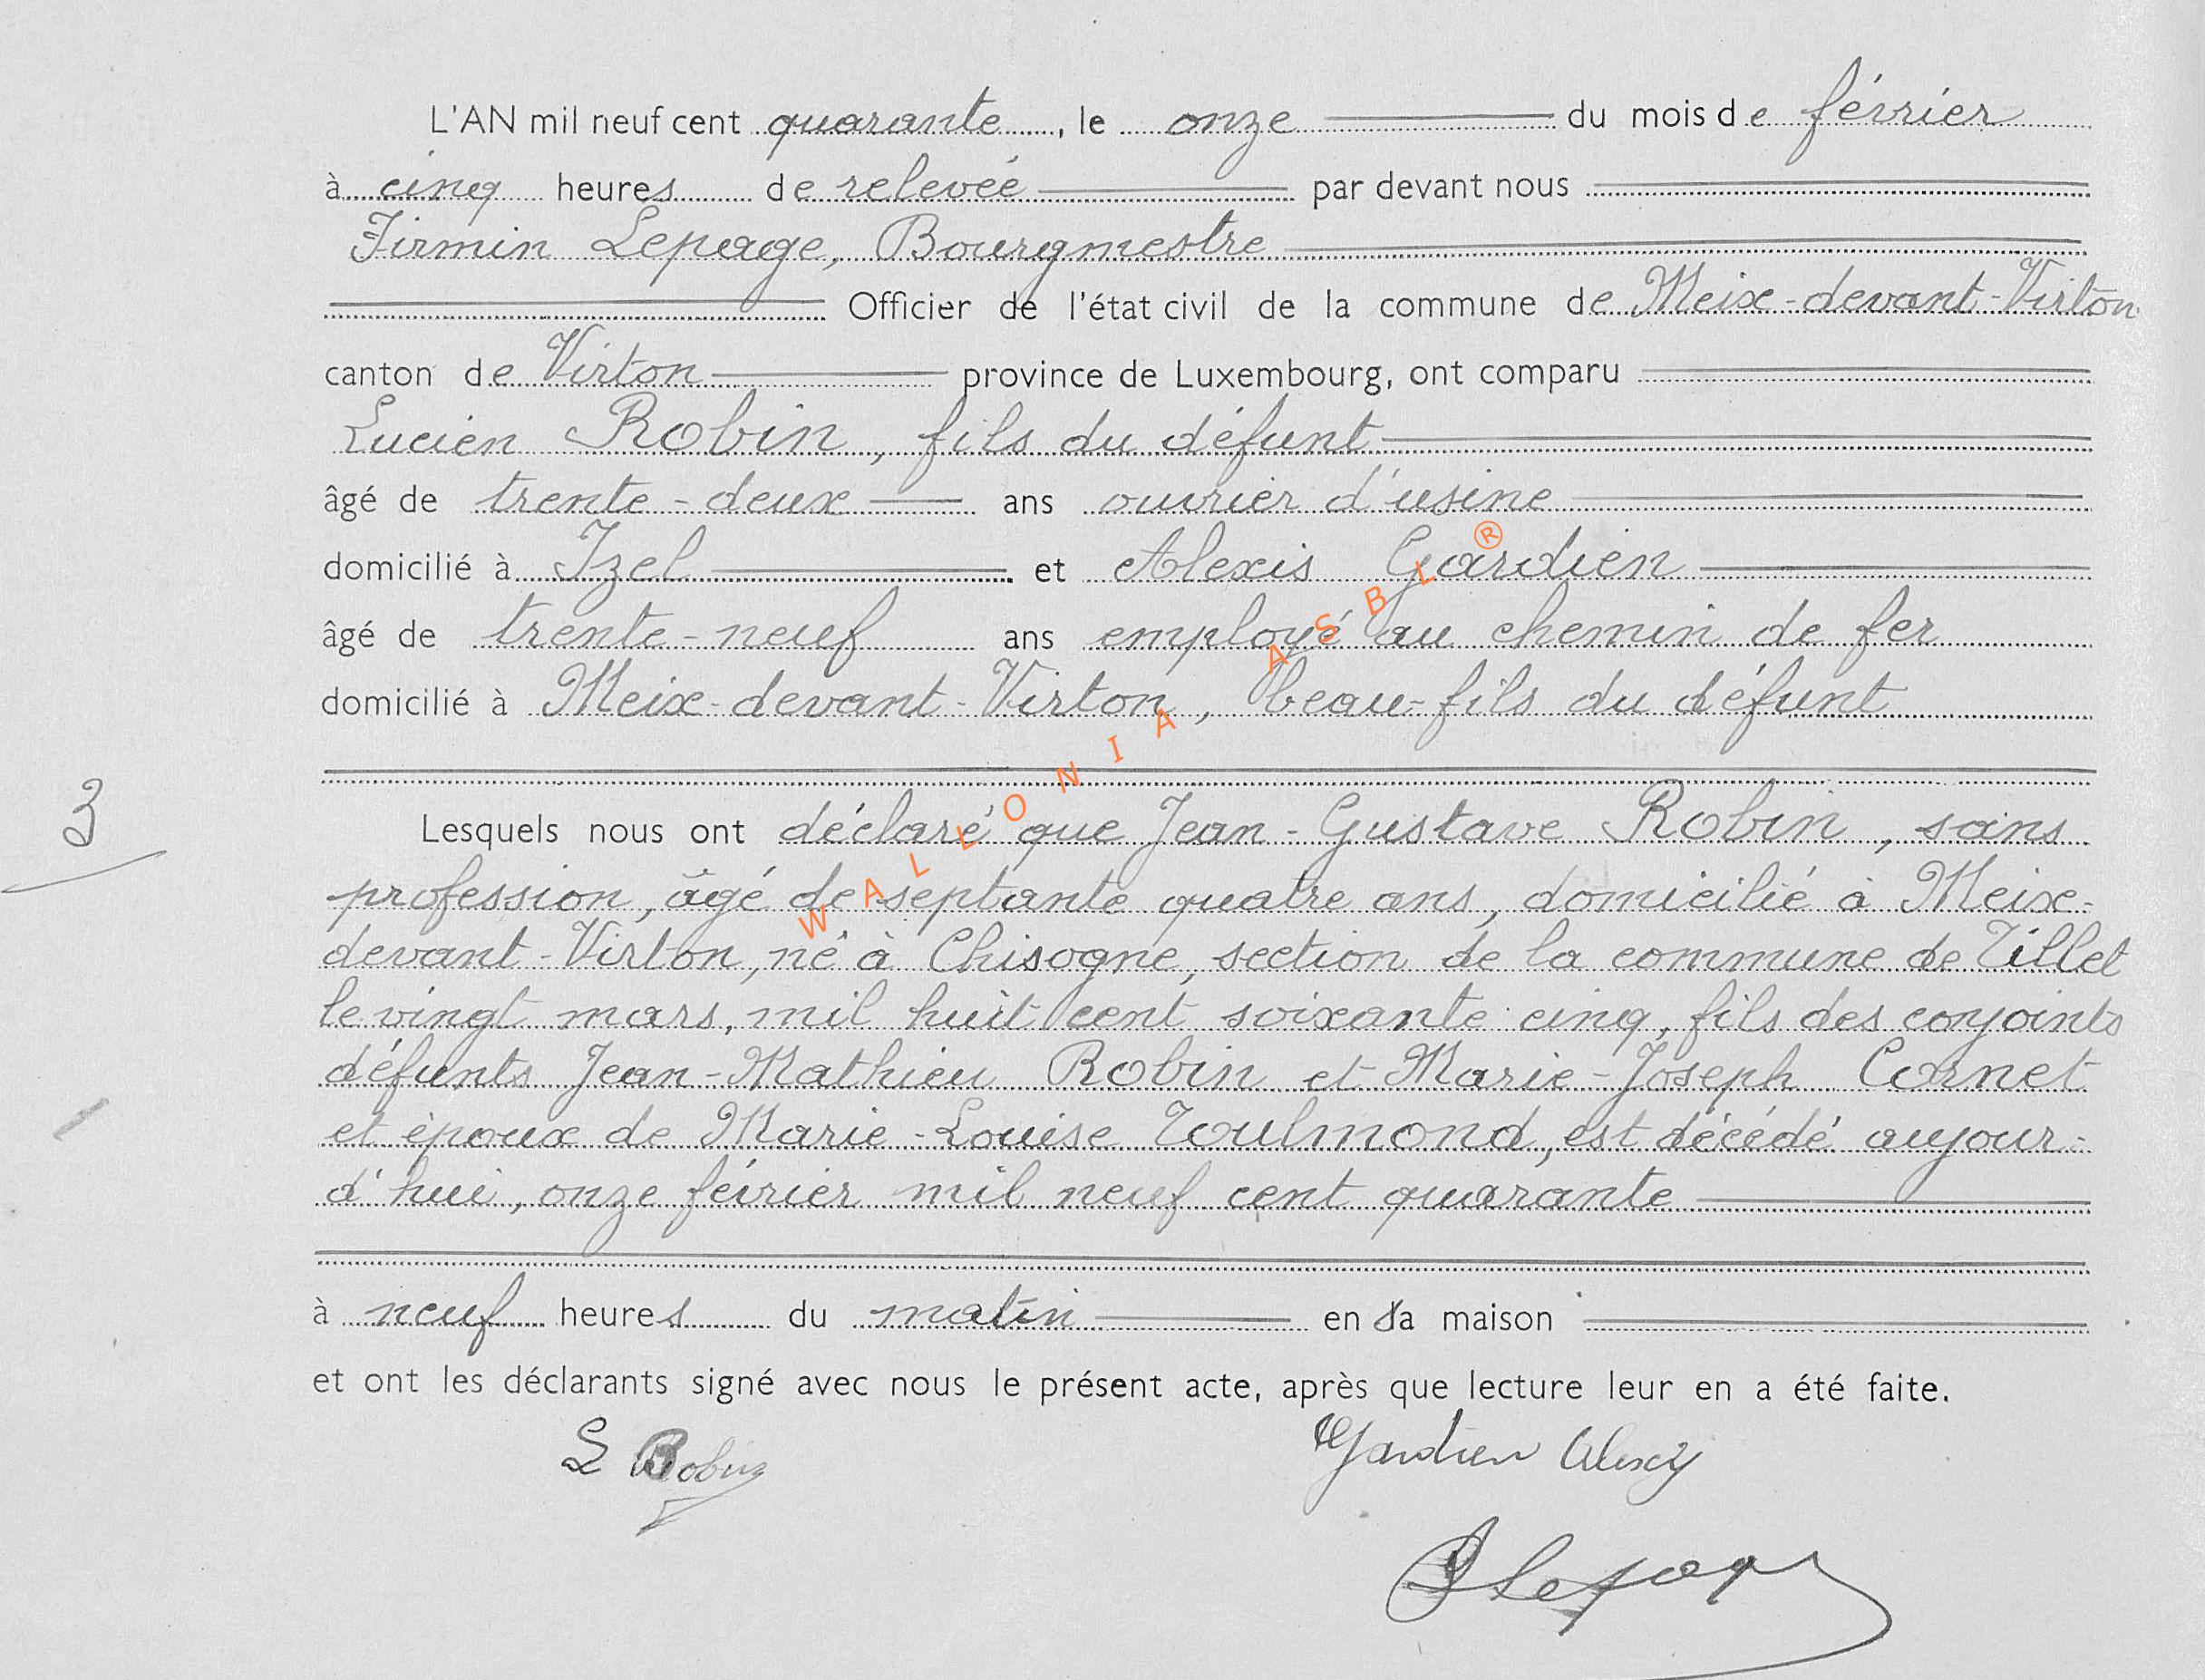 L'AN mil neuf cent quarante, le onze du mois de février
à cinq heures de relevée par devant nous
Firmin Lepage, Bourgmestre
Officier de l'état civil de la commune de Meix-devant-Virton
canton de Virton province de Luxembourg, ont comparu
Lucien Robin, fils du défunt
âgé de trente-deux ans ouvrier d'usine
domicilié à Izel et Alexis Gardien
âgé de trente-neuf ans employé au chemin de fer
domicilié à Meix-devant-Virton, beau-fils du défunt
3
Lesquels nous ont déclaré que Jean-Gustave Robin, sans
profession, âgé de septante quatre ans, domicilié à Meix-
devant-Virton, né à Chisogne, section de la commune de Tillet
le vingt mars, mil huit cent soixante cinq, fils des conjoints
défunts Jean-Mathieu Robin et Marie-Joseph Cornet
et époux de Marie-Louise Toulmond, est décédé aujour-
d'hui, onze février mil neuf cent quarante
à neuf heures du matin en sa maison
et ont les déclarants signé avec nous le présent acte, après que lecture leur en a été faite.
L Robin
Gardien Alexis
Lepage
WALLONIA ASBL ®